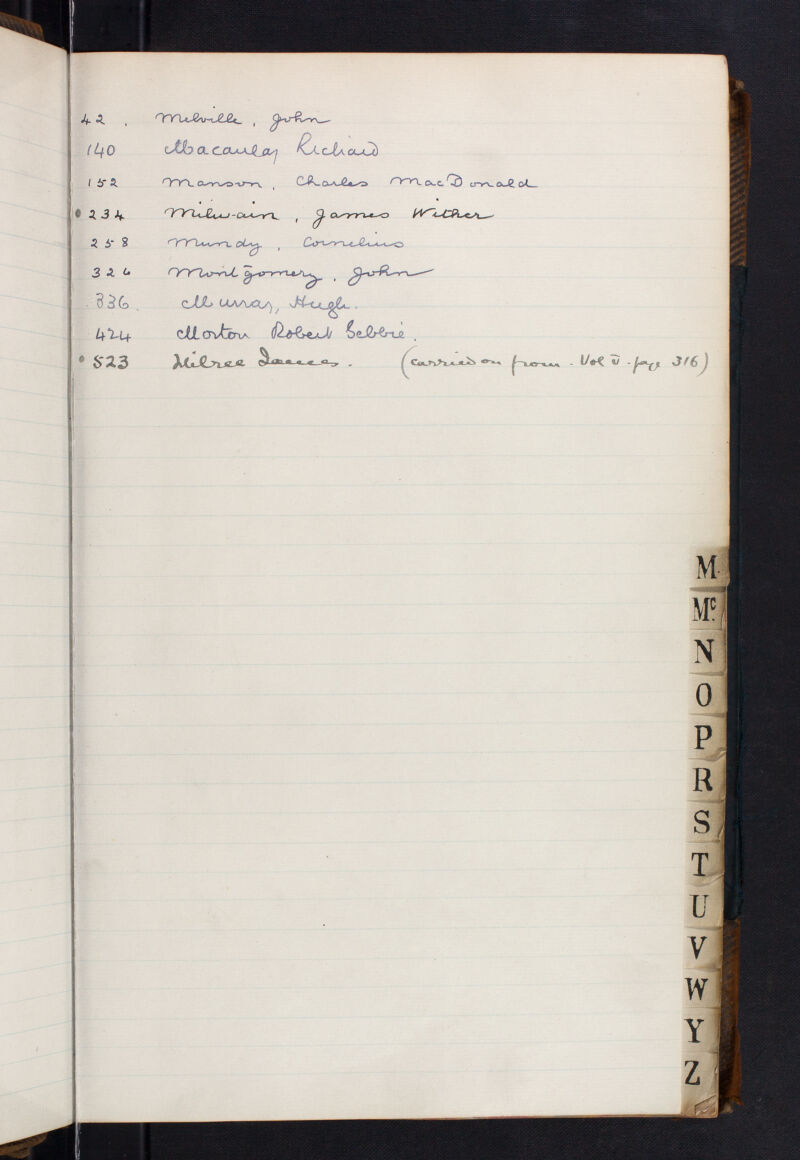 42. Melville, John
140 Macaulay Richard
152 Manson, Charles MacDonald
234 Milwain, James Wither
258 Mundy, Cornelius
326 Montgomery, John
336. Murray, Hugh.
424 Morton Robert Gebbie.
523 Milree James. (carried on from. Vol V. page 316)
M
Mc.
N
O
P
R
S
T
U
V
W
Y
Z